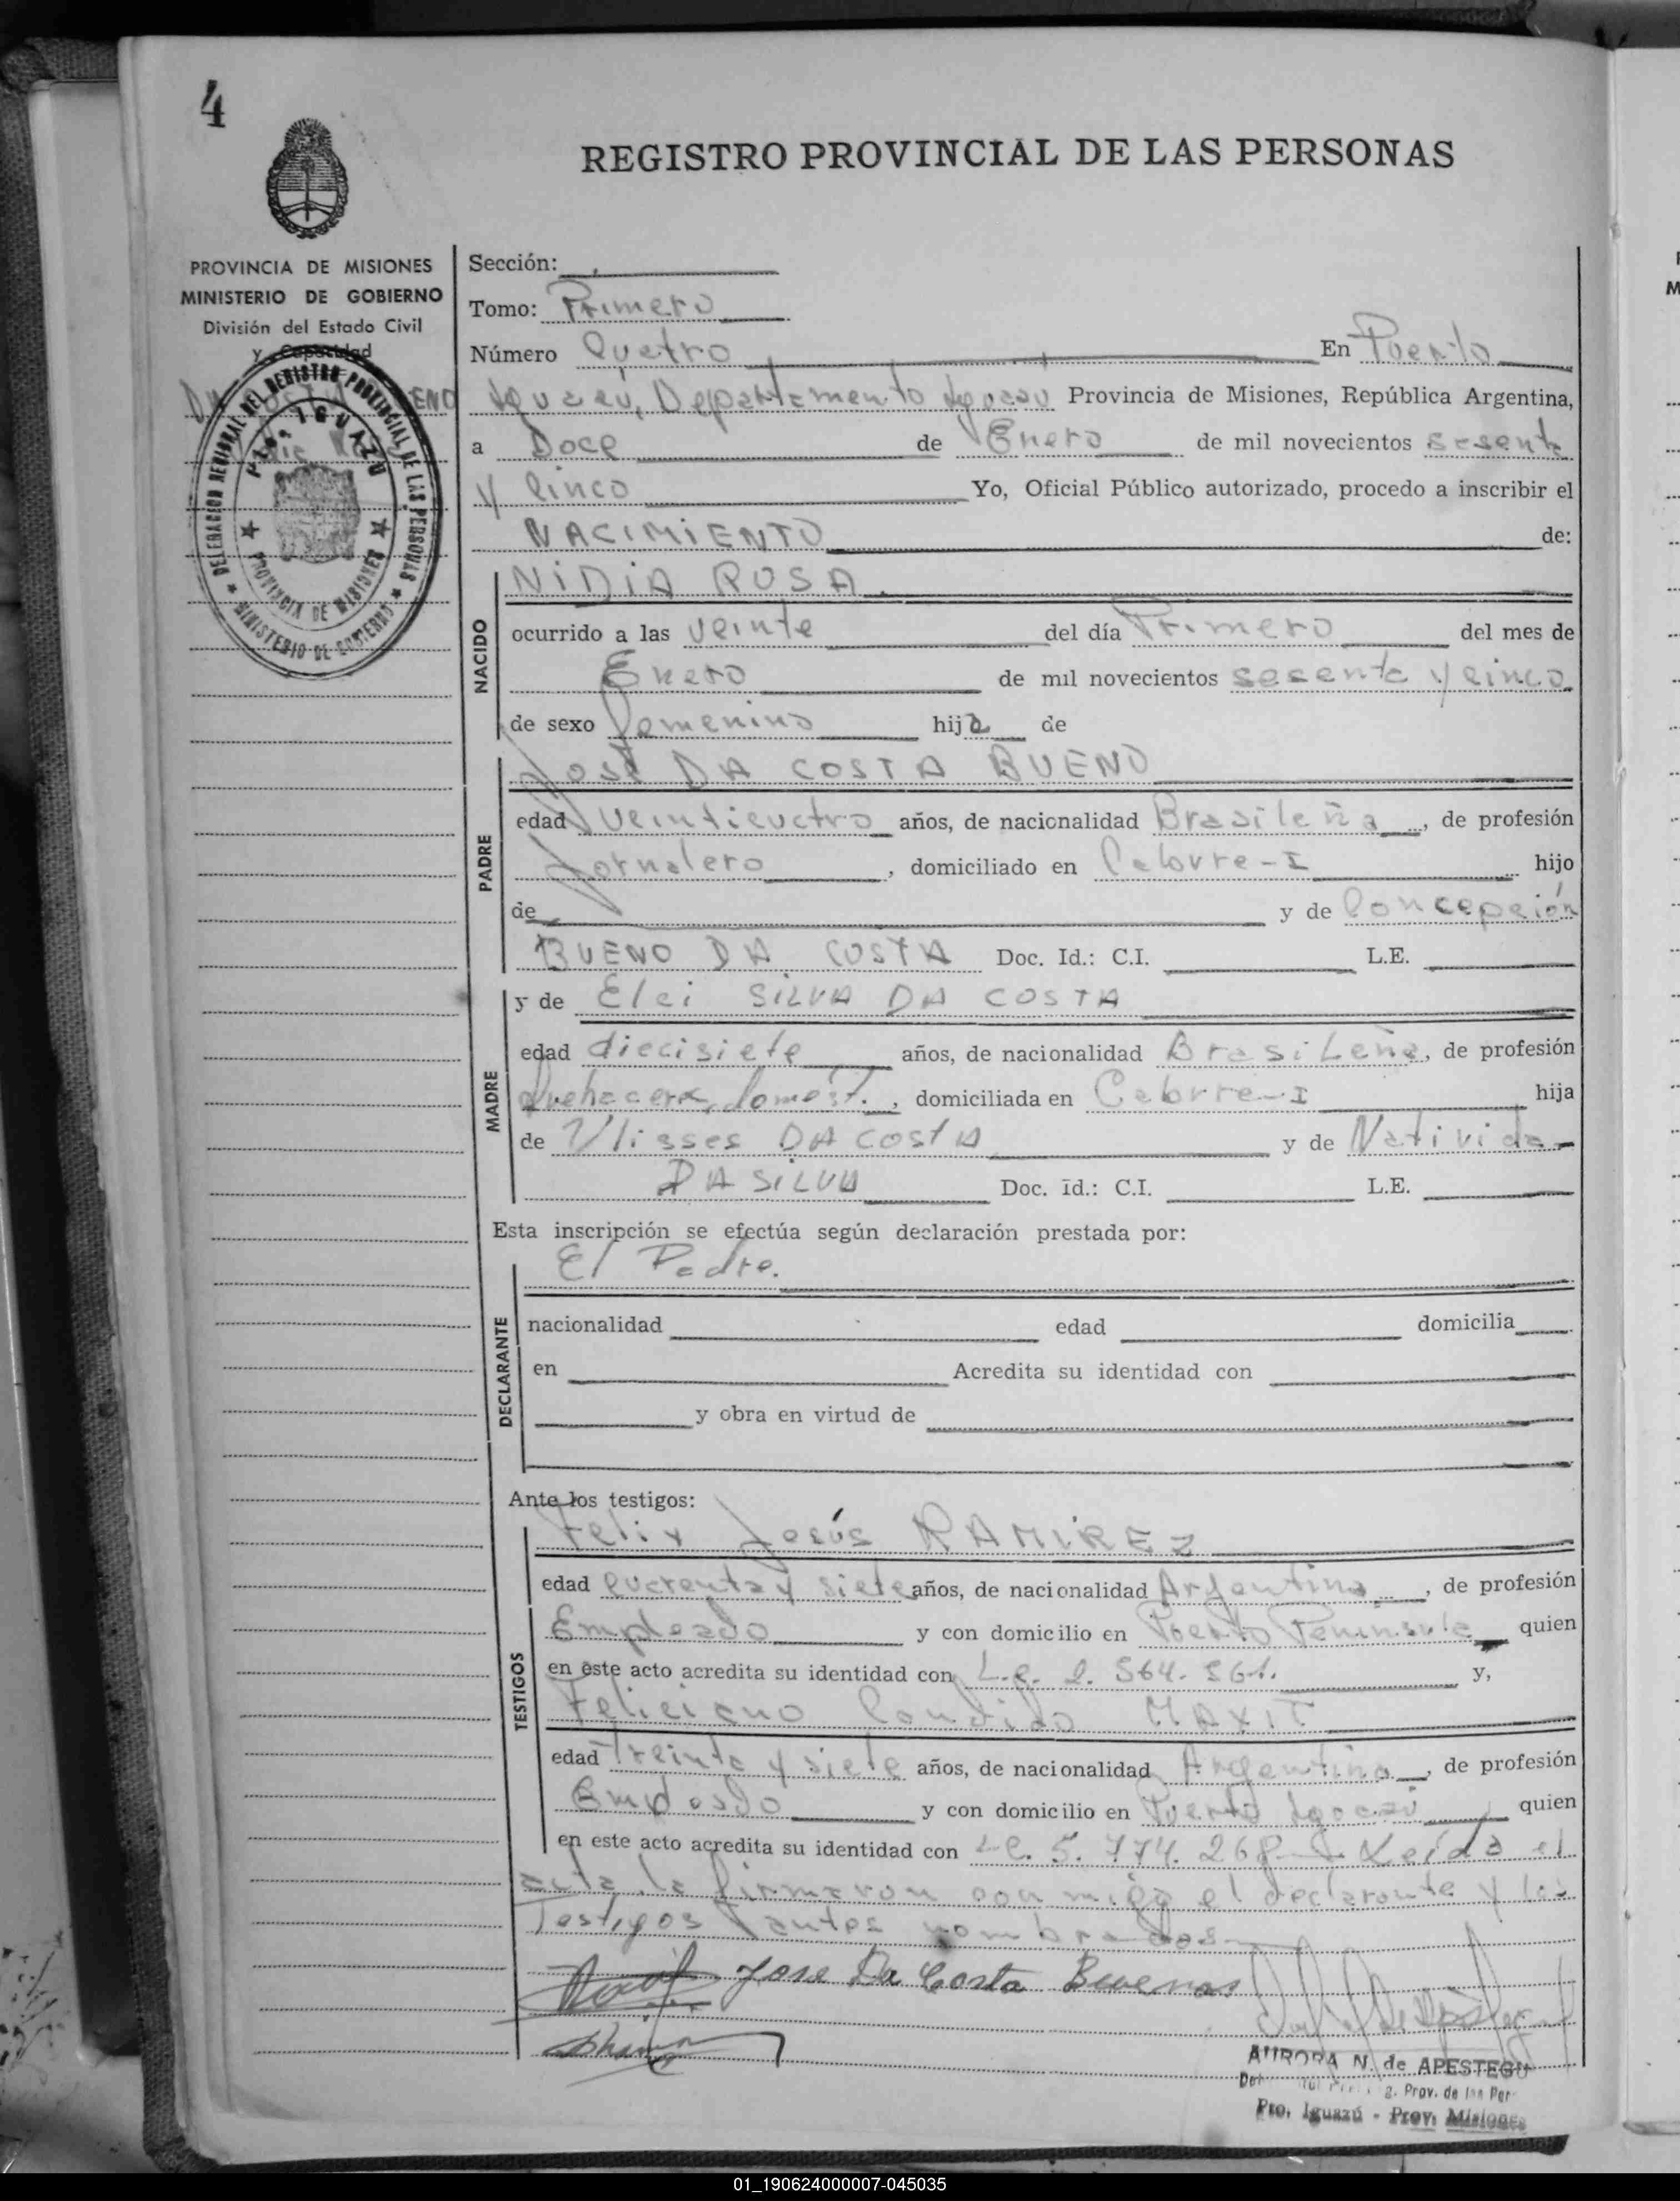 4
REGISTRO PROVINCIAL DE LAS PERSONAS
PROVINCIA DE MISIONES
MINISTERIO DE GOBIERNO
División del Estado Civil
y Capacidad
DELEGACION REGIONAL DEL REGISTRO PROVINCIAL DE LAS PERSONAS
PTO. IGUAZU
PROVINCIA DE MISIONES
MINISTERIO DE GOBIERNO
Sección:
Tomo: Primero
Número Cuatro En Puerto
Iguazú, Departamento Iguazú Provincia de Misiones, República Argentina,
a Doce de Enero de mil novecientos sesenta
y Cinco Yo, Oficial Público autorizado, procedo a inscribir el
NACIMIENTO de:
NACIDO
NIDIA ROSA
ocurrido a las veinte del día Primero del mes de
Enero de mil novecientos sesenta y cinco
de sexo femenino hija de
PADRE
José DA COSTA BUENO
edad Veinticuatro años, de nacionalidad Brasileña, de profesión
Jornalero, domiciliado en hijo
de y de Concepción
BUENO DA COSTA Doc. Id.: C.I. L.E.
MADRE
y de Elci SILVA DA COSTA
edad diecisiete años, de nacionalidad Brasileña, de profesión
Quehacers. domést., domiciliada en hija
de Ulisses DA COSTA y de Nativida
DA SILVA Doc. Id.: C.I. L.E.
Esta inscripción se efectúa según declaración prestada por:
El Padre.
DECLARANTE
nacionalidad edad domicilia
en Acredita su identidad con
y obra en virtud de
Ante los testigos:
TESTIGOS
Felix Jesús RAMIREZ
edad cuarenta y siete años, de nacionalidad Argentina, de profesión
Empleado y con domicilio en Puerto Peninsula quien
en este acto acredita su identidad con L.E. 2.564.561. y,
Feliciano Candido MAXIT
edad Treinta y siete años, de nacionalidad Argentina, de profesión
Empleado y con domicilio en Puerto Iguazú quien
en este acto acredita su identidad con L.E. 5.774.268 Leída el
acta la firmaron con migo el declarante y los
Testigos antes nombrados
Jose Da Costa Buenos
AURORA N. de APESTEGU
Prov. de las Per
Pto. Iguazú - Prov. Misiones
01_190624000007-045035